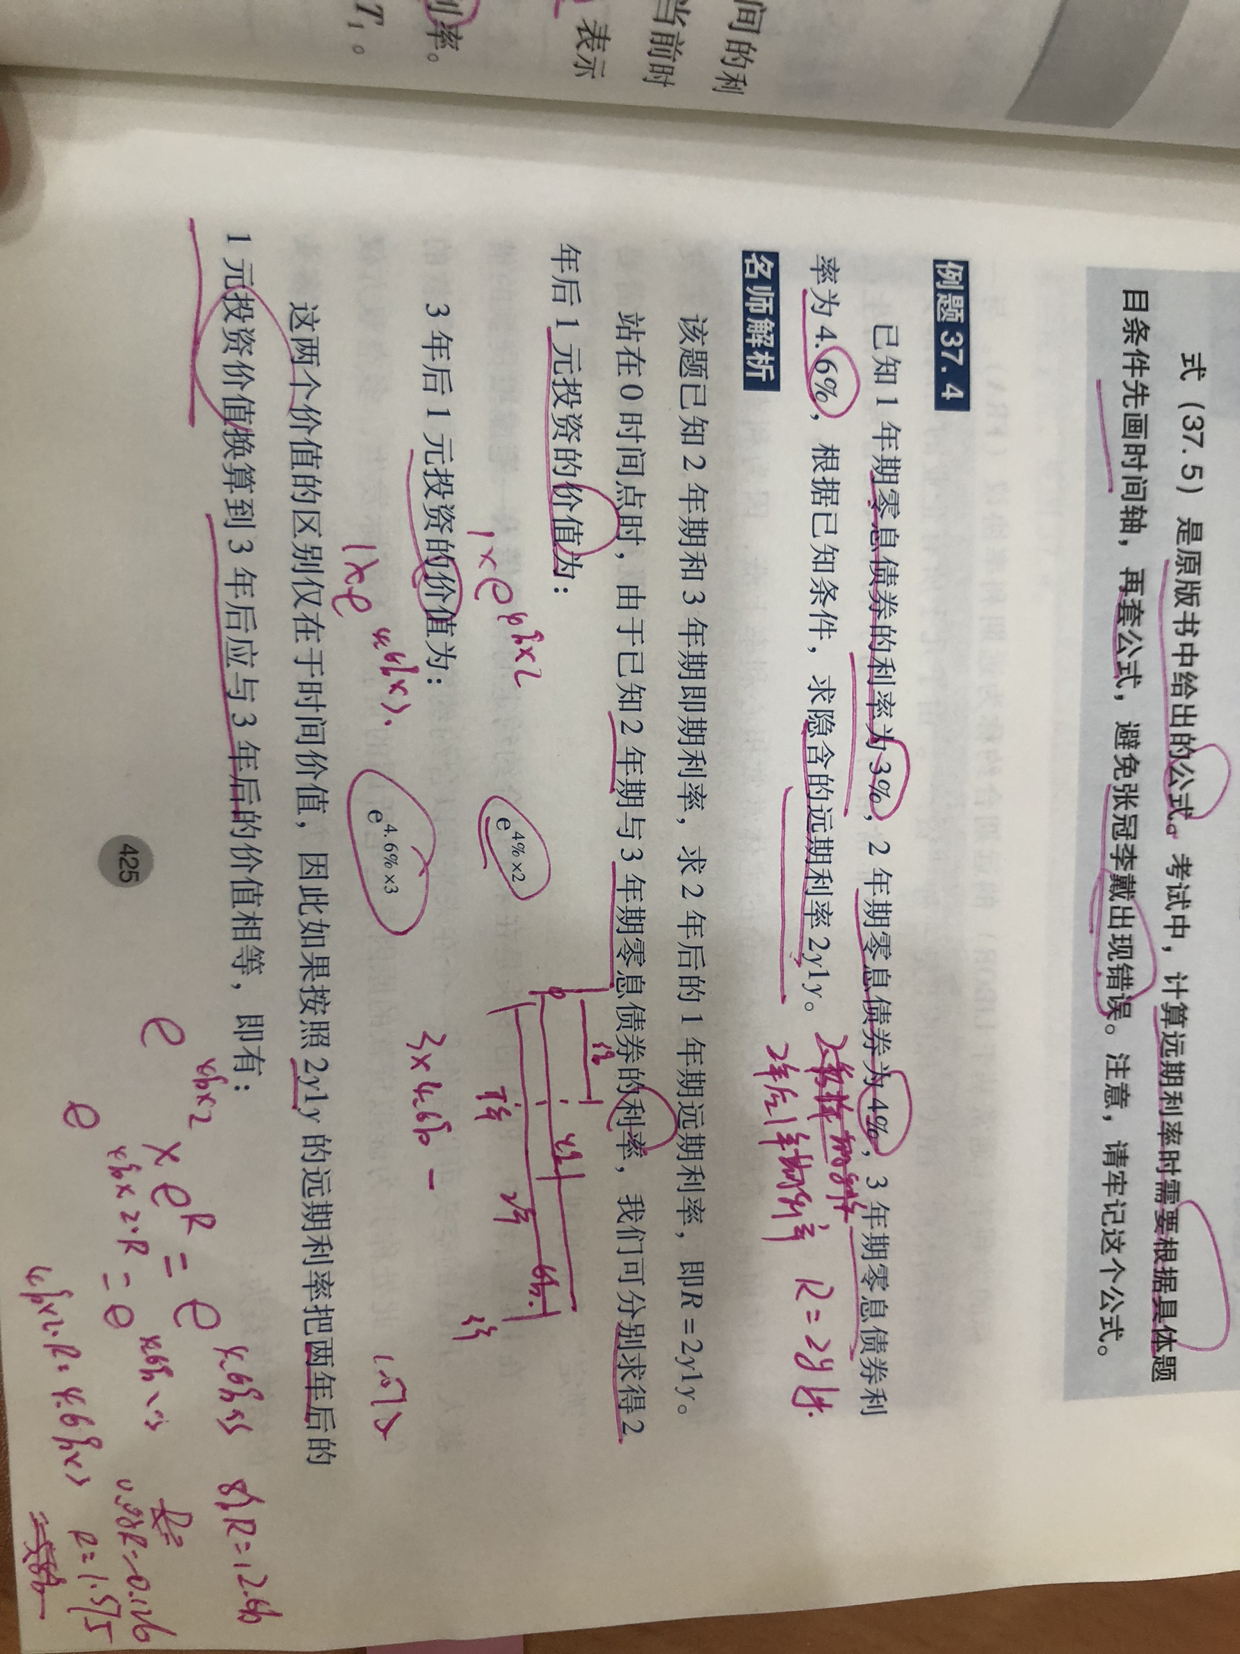 间的利
当前时
表示
率。
T₁。
式（37.5）是原版书中给出的公式。考试中，计算远期利率时需要根据具体题
目条件先画时间轴，再套公式，避免张冠李戴出现错误。注意，请牢记这个公式。
例题 37.4
已知 1 年期零息债券的利率为 3%，2 年期零息债券为 4%，3 年期零息债券利
率为 4.6%，根据已知条件，求隐含的远期利率 2y1y。
2年后1年期利率 R=2y1y.
名师解析
该题已知 2 年期和 3 年期即期利率，求 2 年后的 1 年期远期利率，即 R=2y1y。
站在 0 时间点时，由于已知 2 年期与 3 年期零息债券的利率，我们可分别求得 2
年后 1 元投资的价值为：
1×e^4%×2
e^4%×2
3 年后 1 元投资的价值为：
3×4.6% -
e^4.6%×3
这两个价值的区别仅在于时间价值，因此如果按照 2y1y 的远期利率把两年后的
1 元投资价值换算到 3 年后应与 3 年后的价值相等，即有：
e^4%×2 × e^R = e^4.6%×3
R=1.575
425